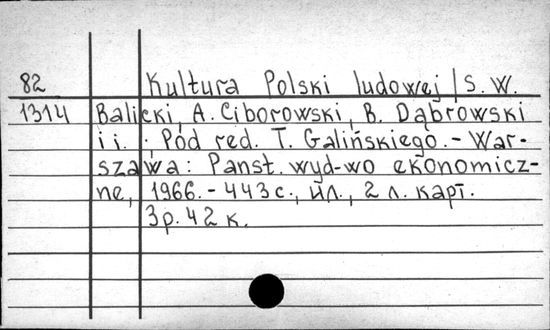 82 Kultura Polski ludowej / S. W.
1314 Balicki, A. Ciborowski, B. Dąbrowski
i i. . Pod red. T. Galińskiego. - War-
szawa: Panst. wyd-wo ekonomicz-
ne, 1966. - 443 с., ил., 2 л. карт.
3р. 42 к.